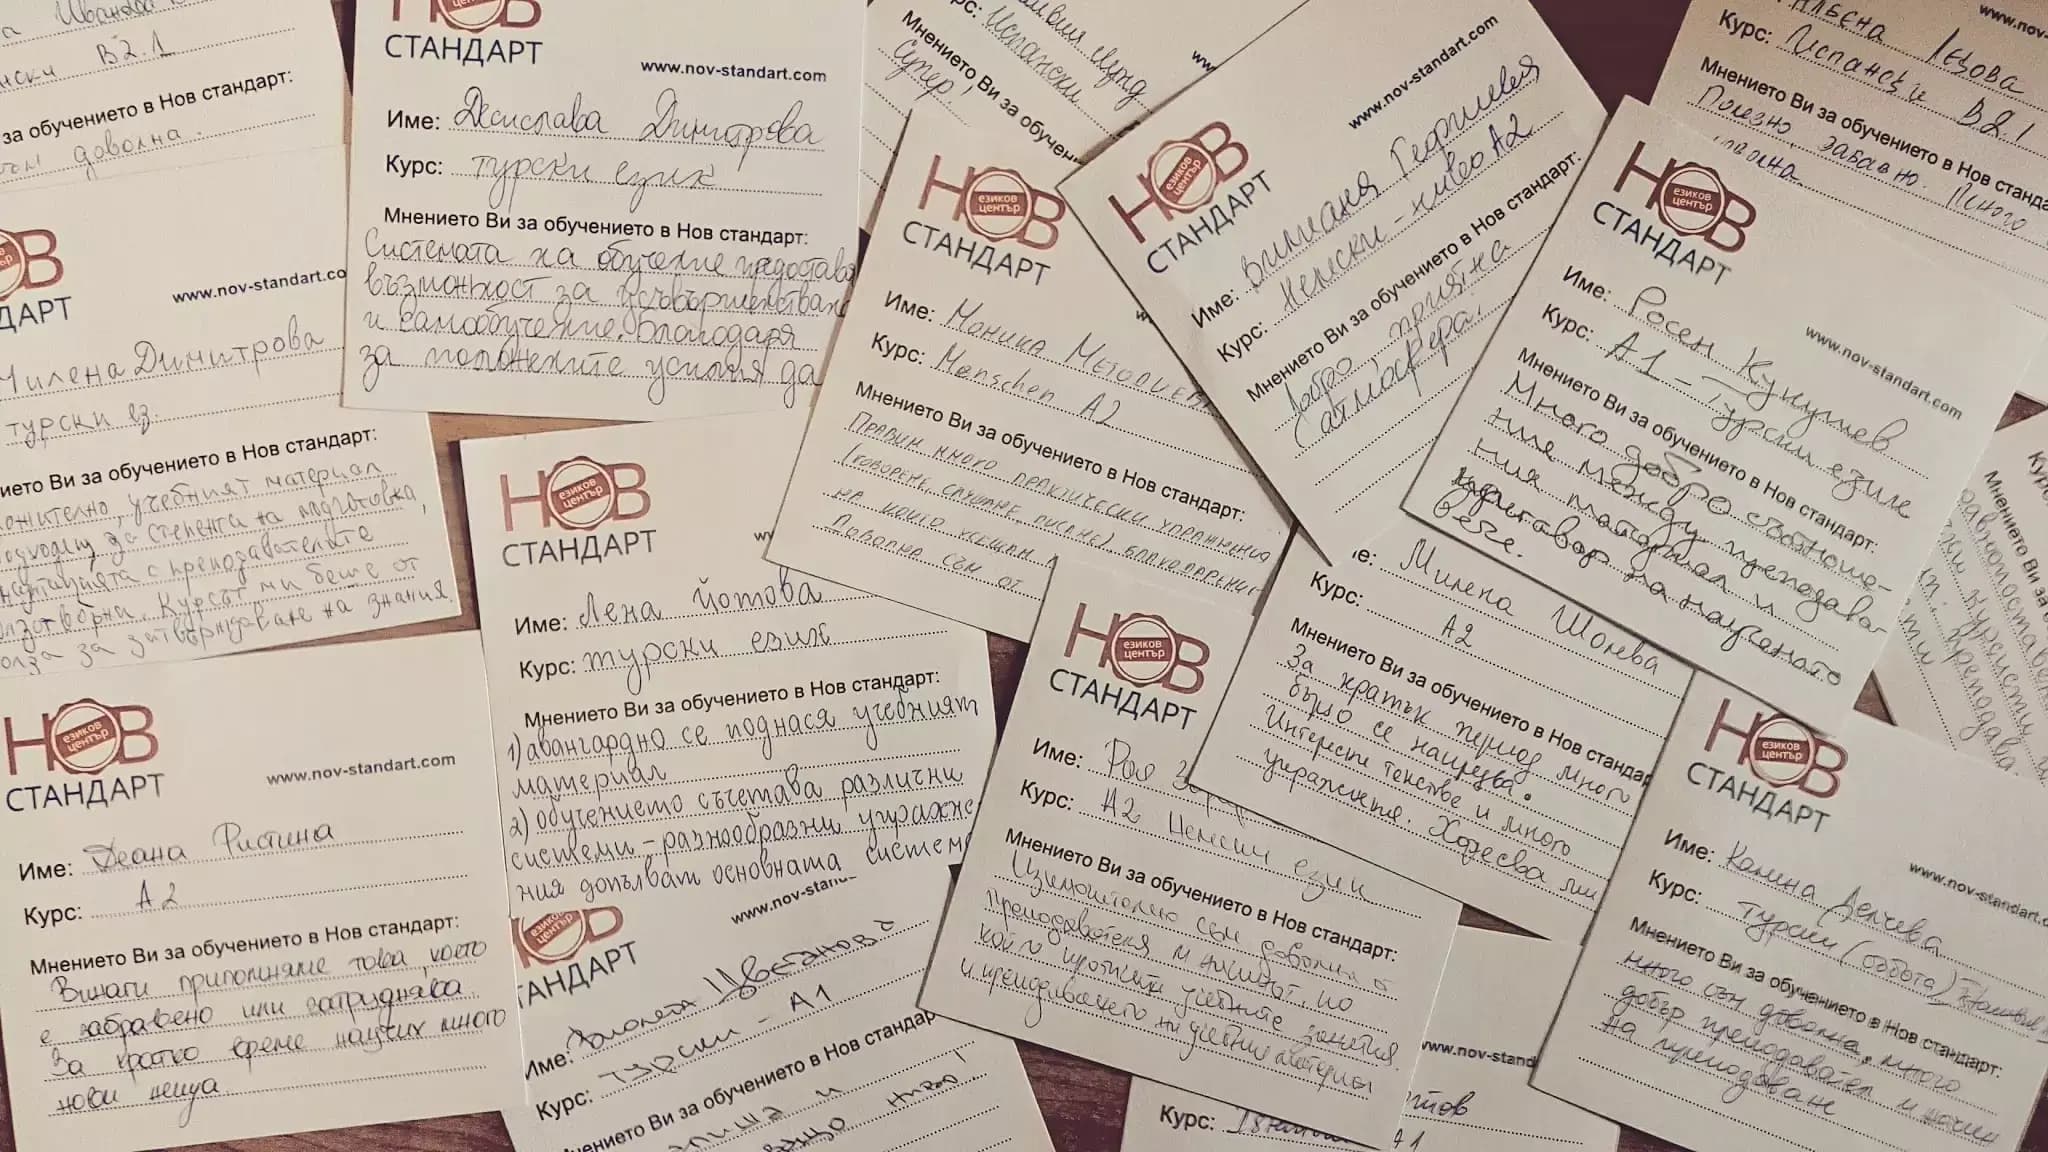 Иванова
нски В2.1
за обучението в Нов стандарт:
доволна.
НОВ
СТАНДАРТ
www.nov-standart.com
Име: Десислава Димитрова
Курс: турски език
Мнението Ви за обучението в Нов стандарт:
Системата на обучение предостав
възможност за усъвършенстван
и самообучение. Благодаря
за положените усилия да
Курс: Испански
Мнението Ви за обучен
Супер,
НОВ
езиков
център
СТАНДАРТ
Име: Моника Методиева
Курс: Menschen A2
Мнението Ви за обучението в Нов стандарт:
Правим много практически упражнения
(говорене, слушане, писане), благодарение
на които усещам
Доволна съм от
НОВ
езиков
център
СТАНДАРТ
www.nov-standart.com
Име: Вилиана Георгиева
Курс: Немски - ниво А2
Мнението Ви за обучението в Нов стандарт:
Добро, приятна
атмосфера.
www.nov-
Курс: Испански В2.1
Мнението Ви за обучението в Нов стандарт:
Полезно, забавно. Много
доволна.
НОВ
езиков
център
СТАНДАРТ
www.nov-standart.com
Име: Росен
Курс: А1 - Турски език
Мнението Ви за обучението в Нов стандарт:
Много добро съотноше-
ние между преподава-
ния материал и
преговор на наученото
вече.
ОВ
ДАРТ
www.nov-standart.co
Милена Димитрова
турски ез.
нието Ви за обучението в Нов стандарт:
ложително, учебният материал
подходящ за степента на подготовка,
с преподавателите
ползотворни. Курсът ми беше от
полза за затвърждаване на знания.
НОВ
езиков
център
СТАНДАРТ
Име: Лена Йотова
Курс: турски език
Мнението Ви за обучението в Нов стандарт:
1) авангардно се поднася учебният
материал
2) обучението съчетава различни
системи - разнообразни упражне
ния допълват основната систем
НОВ
езиков
център
СТАНДАРТ
www.nov-standart.com
Име: Деана Ристина
Курс: А2
Мнението Ви за обучението в Нов стандарт:
Винаги припомняме това, което
е забравено или затруднява.
За кратко време научих много
нови неща.
езиков
център
ТАНДАРТ
www.nov-stan
Име: Виолета Цветанова
Курс: турски - А1
Мнението Ви за обучението в Нов стандарт:
ниво!
НОВ
езиков
център
СТАНДАРТ
Име: Рая
Курс: А2 Немски език
Мнението Ви за обучението в Нов стандарт:
Изключително съм доволна от
преподавателя и начинът, по
който протичат учебните занятия
и преподаването на учебния материал
Милена Шонева
Курс: А2
Мнението Ви за обучението в Нов стандарт
За кратък период много
бързо се напредва.
Интересни текстове и много
упражнения. Харесва ми
НОВ
езиков
център
СТАНДАРТ
www.nov-standart.
Име: Калина Делчева
Курс: Турски (събота)
Мнението Ви за обучението в Нов стандарт:
много съм доволна, много
добър преподавател и начин
на преподаване
www.nov-standa
Курс:
А1
Мнението Ви за
курсисти
преподава.